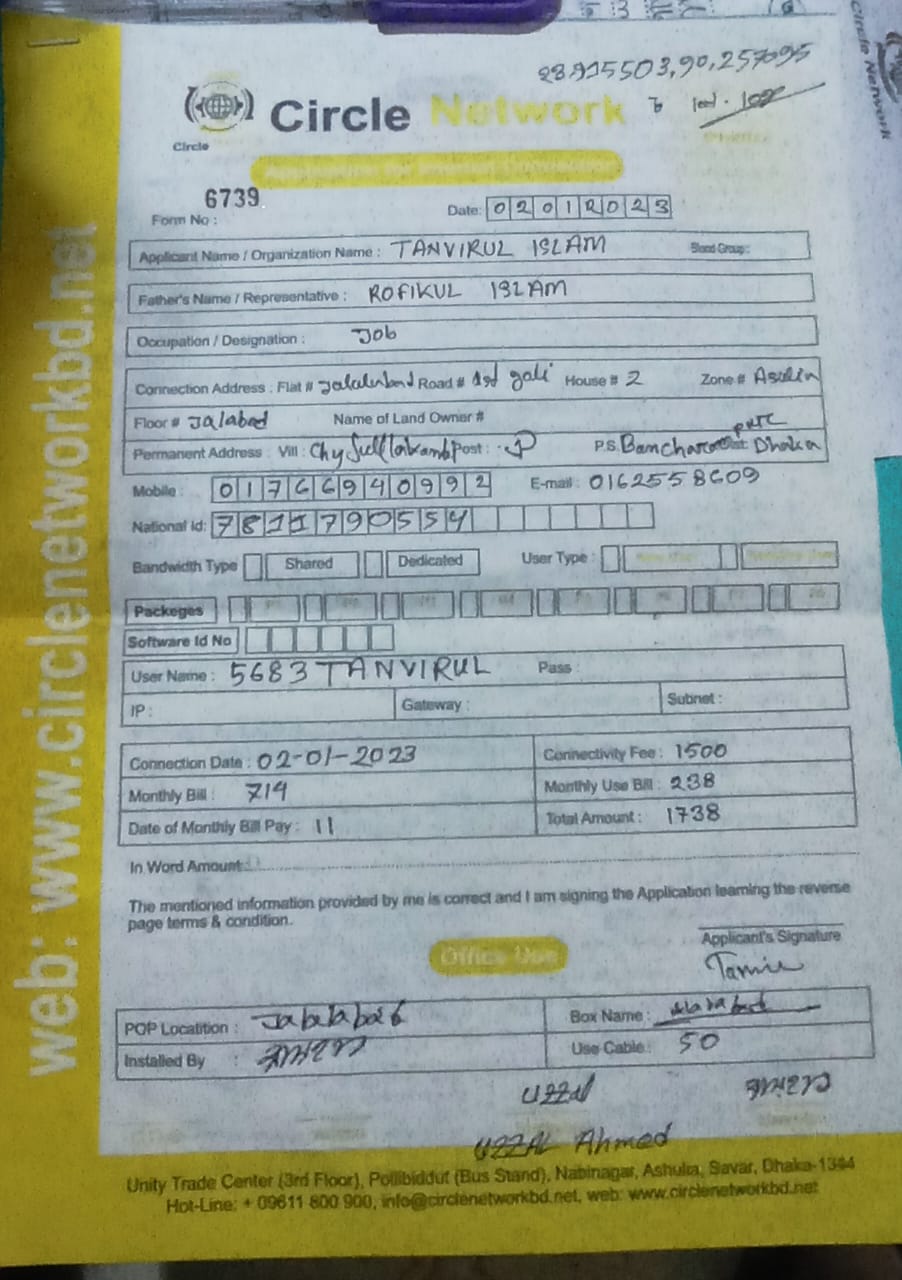 Circle Network
Circle
6739
Form No :
Date: 02012023
Applicant Name / Organization Name : TANVIRUL ISLAM Blood Group :
Father's Name / Representative : ROFIKUL ISLAM
Occupation / Designation : Job
Connection Address : Flat # Road # 1st gali House # 2 Zone #
Floor # Jalabad Name of Land Owner #
Permanent Address : Vill : Post : P.S. Dhaka
Mobile : 01766940992 E-mail : 0162558609
National Id: 7811790554
Bandwidth Type Shared Dedicated User Type :
Packeges
Software Id No
User Name : 5683 TANVIRUL Pass :
IP : Gateway : Subnet :
Connection Date : 02-01-2023 Connectivity Fee : 1500
Monthly Bill : 714 Monthly Use Bill : 238
Date of Monthly Bill Pay : 11 Total Amount : 1738
In Word Amount:
The mentioned information provided by me is correct and I am signing the Application learning the reverse
page terms & condition.
Applicant's Signature
Office Use
POP Locatition : Box Name :
Installed By : Use Cable : 50
UZZAL
UZZAL Ahmed
Unity Trade Center (3rd Floor), Pollibiddut (Bus Stand), Nabinagar, Ashulia, Savar, Dhaka-1344
Hot-Line: + 09611 800 900, info@circlenetworkbd.net, web: www.circlenetworkbd.net
web: www.circlenetworkbd.net
Circle Network